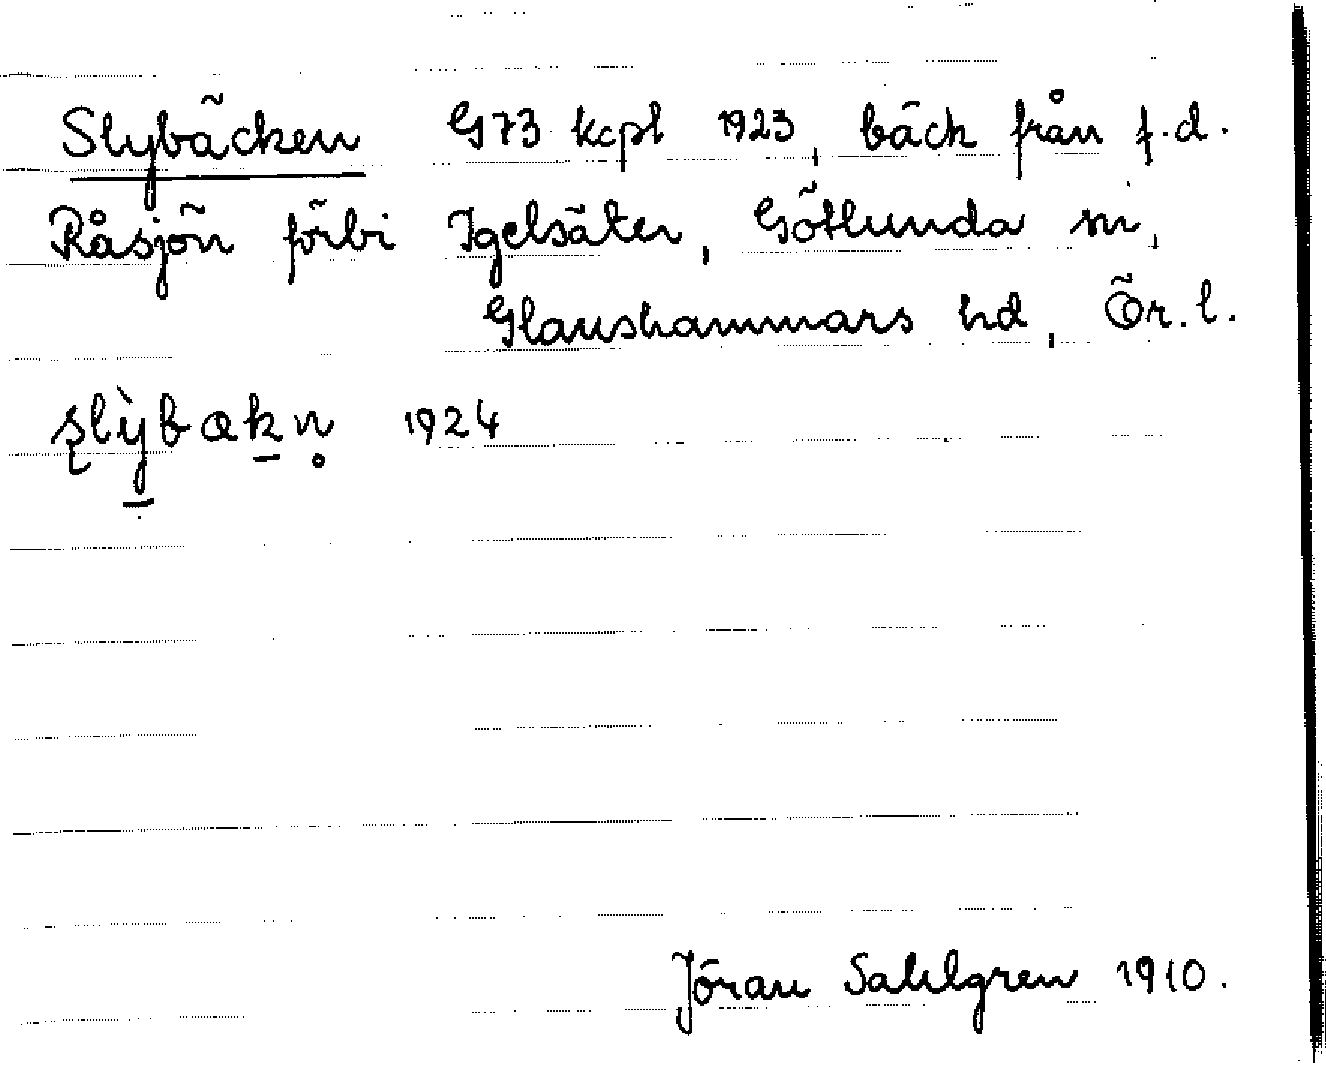 Slybäcken G73 kcpl 1923, bäck från f.d.
Råsjön förbi Igelsäter, Götlunda sn,
Glanshammars hd, Ör. l.
slỳbækn̥ 1924
Jöran Sahlgren 1910.